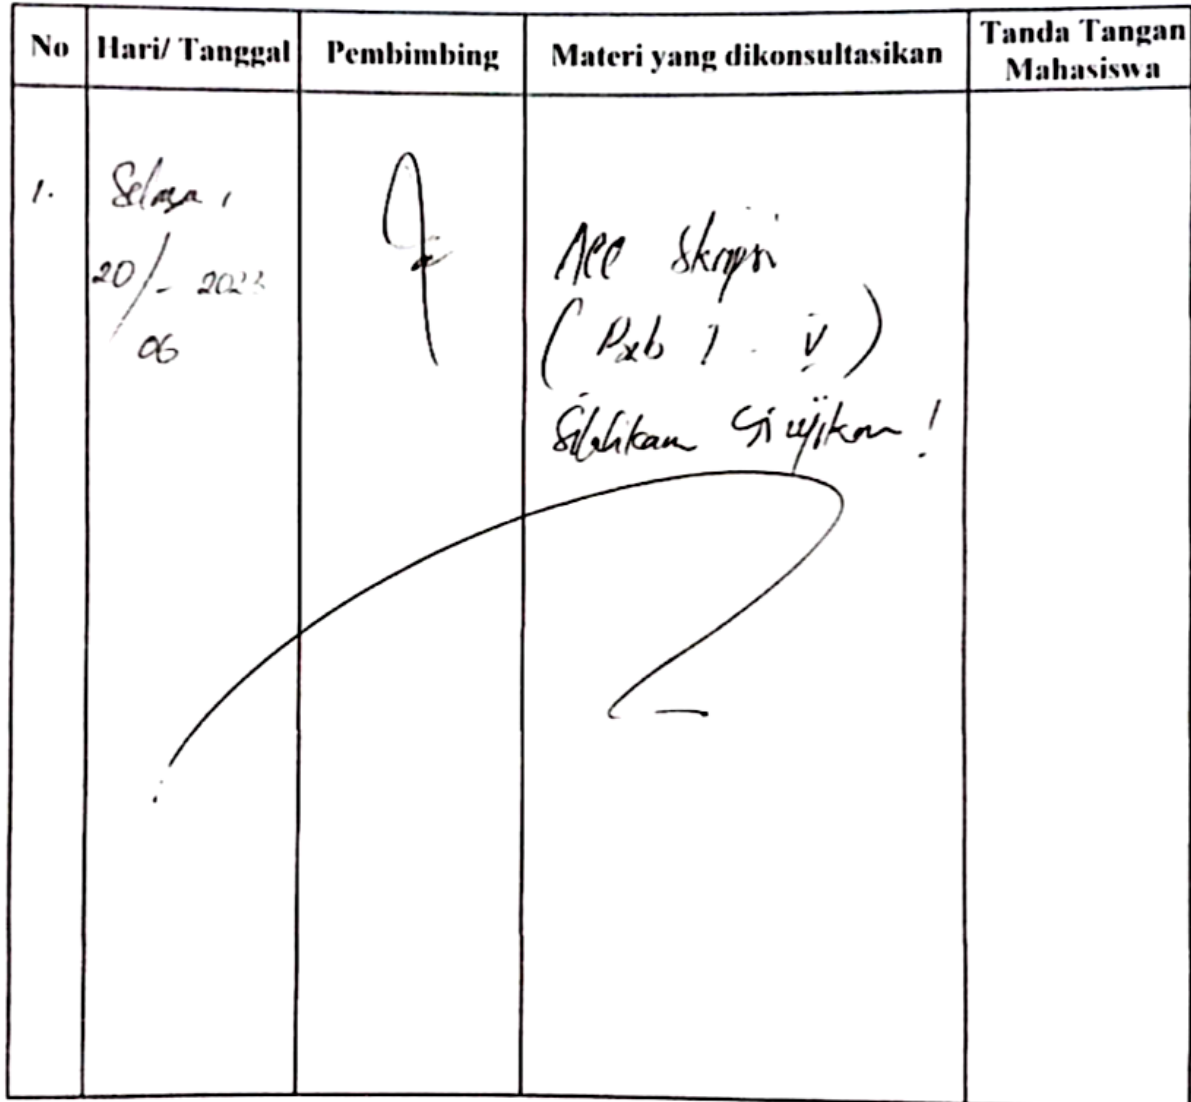 No Hari/ Tanggal Pembimbing Materi yang dikonsultasikan Tanda Tangan
Mahasiswa
1. Selasa,
20/- 2023
06
Acc Skripsi
(Bab I - V)
Silahkan diujikan!